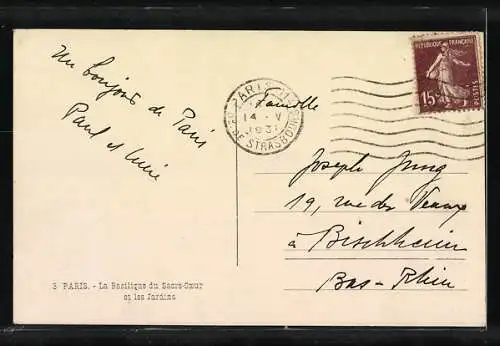 Un bonjour de Paris
Paul et
3 PARIS. - La Basilique du Sacré-Cœur
et les Jardins
PARIS
14 - V
1931
DE STRASBOURG
REPUBLIQUE FRANÇAISE
15
POSTES
Famille
Joseph Jung
19, rue des Veaux
à Bischheim
Bas-Rhin